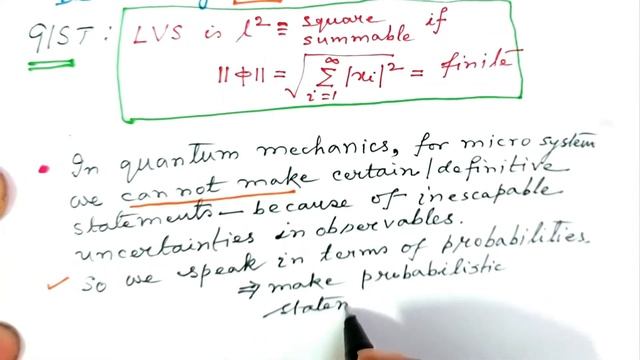 GIST: LVS is l² ≡ square summable if
||φ|| = √ ∞ Σ i=1 |xi|² = finite
• In quantum mechanics, for micro system
we cannot make certain/definitive
statements — because of inescapable
uncertainties in observables.
✓ So we speak in terms of probabilities.
⇒ make probabilistic
statem